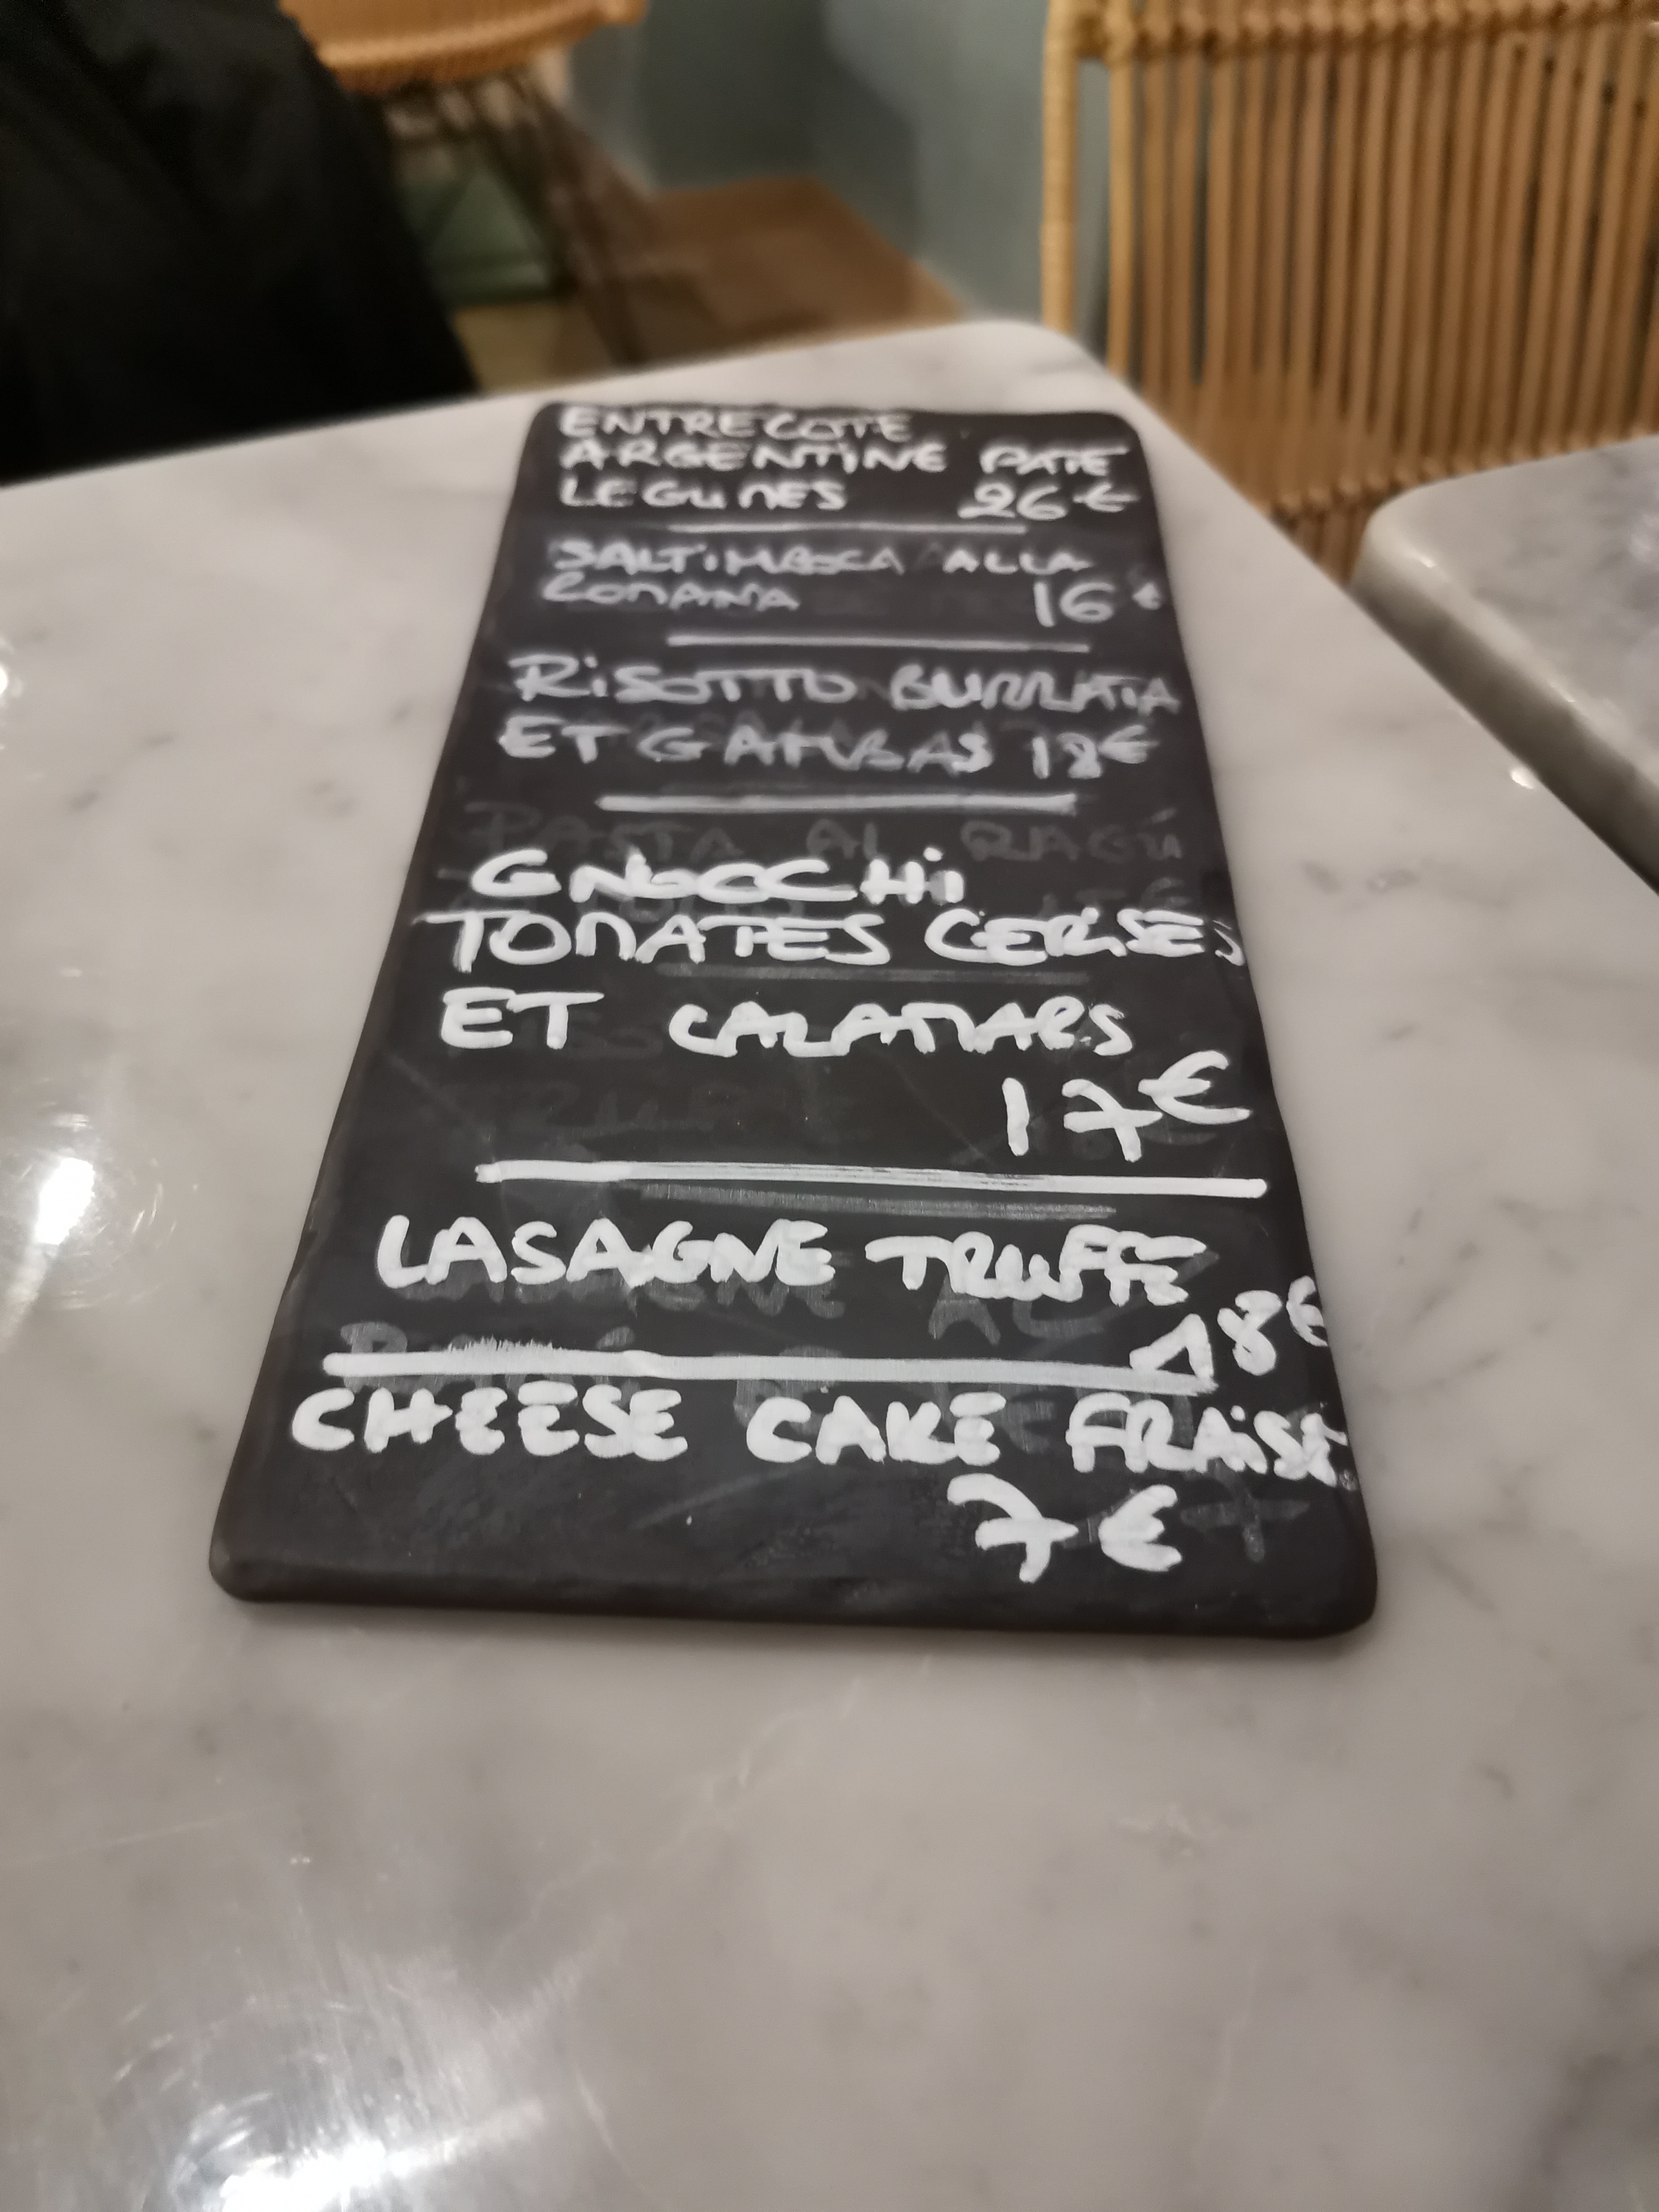 ENTRECOTE
ARGENTINE PATE
LEGUMES 26€
SALTIMBOCA ALLA
ROMANA 16€
RISOTTO BURRATA
ET GAMBAS 18€
GNOCCHI
TOMATES CERISES
ET CALAMARS
17€
LASAGNE TRUFFE
18€
CHEESE CAKE FRAISE
7€